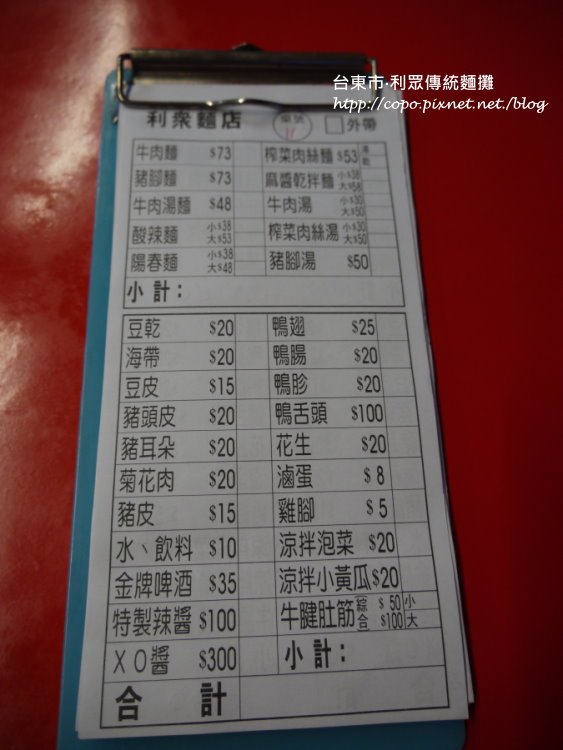 台東市·利眾傳統麵攤
http://copo.pixnet.net/blog
利眾麵店 桌號 11 □外帶
牛肉麵 $73 榨菜肉絲麵 $53 湯 乾
豬腳麵 $73 麻醬乾拌麵 小$38 大$58
牛肉湯麵 $48 牛肉湯 小$30 大$50
酸辣麵 小$38 大$53 榨菜肉絲湯 小$30 大$50
陽春麵 小$38 大$48 豬腳湯 $50
小計：
豆乾 $20 鴨翅 $25
海帶 $20 鴨腸 $20
豆皮 $15 鴨胗 $20
豬頭皮 $20 鴨舌頭 $100
豬耳朵 $20 花生 $20
菊花肉 $20 滷蛋 $8
豬皮 $15 雞腳 $5
水、飲料 $10 涼拌泡菜 $20
金牌啤酒 $35 涼拌小黃瓜 $20
特製辣醬 $100 牛腱肚筋 綜合 $50 小 $100 大
XO醬 $300 小計：
合計